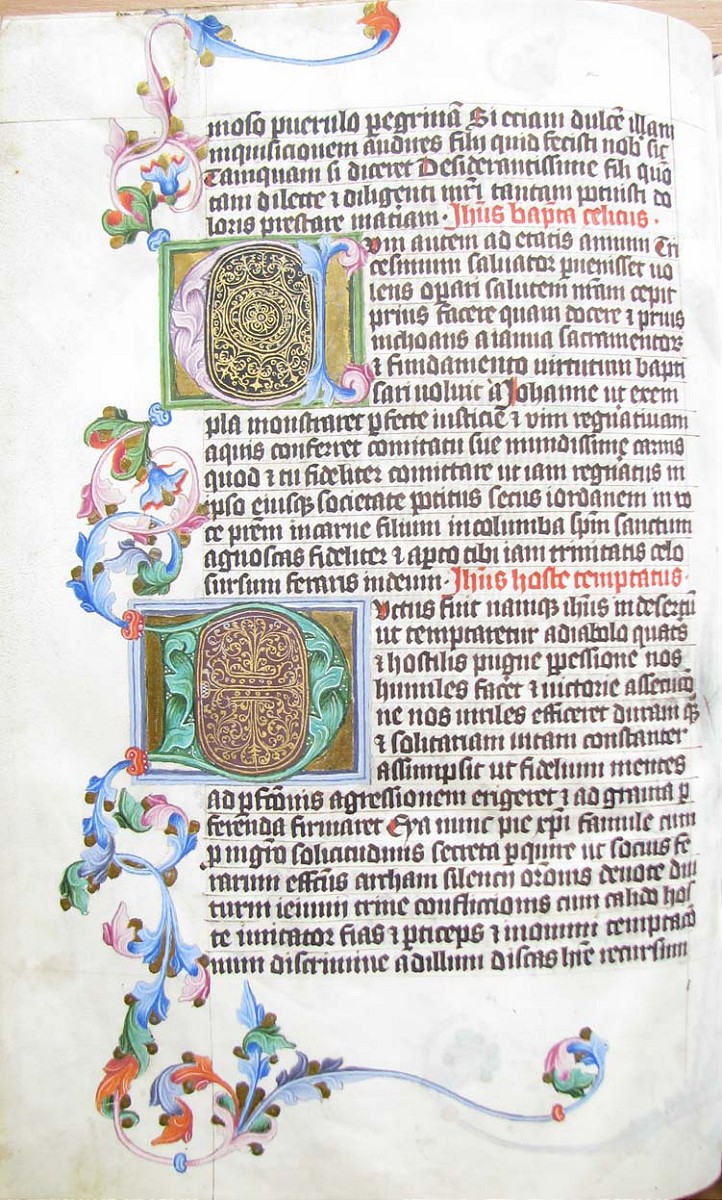 moso puerulo peregrinā Si etiam dulcē illam
inquisicionem audires filij quid fecisti nob̄ sic
Tamquam si diceret Desiderantissime fili quō
tam dilecte ⁊ diligenti mr̄i tantam potuisti do
loris prestare matiam · Jhūs bapt̄a celicus ·
Cum autem ad etatis annum Tri
cesimum saluator puenisset uo
lens opari salutem nr̄am cepit
prius facere quam docere ⁊ prius
inchoans a ianua sacramentorꝝ
⁊ fundamento uirtutum bapti
sari uoluit a Johanne ut exem
pla monstraret pfecte iusticiē ⁊ vim regn̄atiuam
aquis conferret comitatu sue mundissimę carnis
quod ⁊ tu fideliter comittare ut iam regn̄atus in
ipso eiusqꝫ societate potitus secus iordanem in vo
ce prēm in carne filium in columba spm̄ sanctum
agnoscas fideliter ⁊ apto tibi iam trinitatis celo
sursum feraris in deum · Jhūs hoste temptatus ·
Ductus fuit namqꝫ ihūs in desertū
ut temptaretur a diabolo quat̄s
⁊ hostilis pugne ppessione nos
humiles facēt ⁊ uictorie assecuc̄o
ne nos uiriles efficeret duram qꝫ
⁊ solitariam uitam constanter
assumpsit ut fidelium mentes
ad pfcōnis agressionem erigeret ⁊ ad grauia p
ferenda firmaret Eya nunc pie xp̄i famule cum
p mgr̄o solicitudinis secreta pquire ut socius fe
rarum effc̄us archam silencij orōnis deuote diu
turni ieiunij trine conflictionis cum calido hos
te imitator fias ⁊ pticeps ⁊ in omni temptac̄o
num discrimine ad illum discas hr̄e recursum